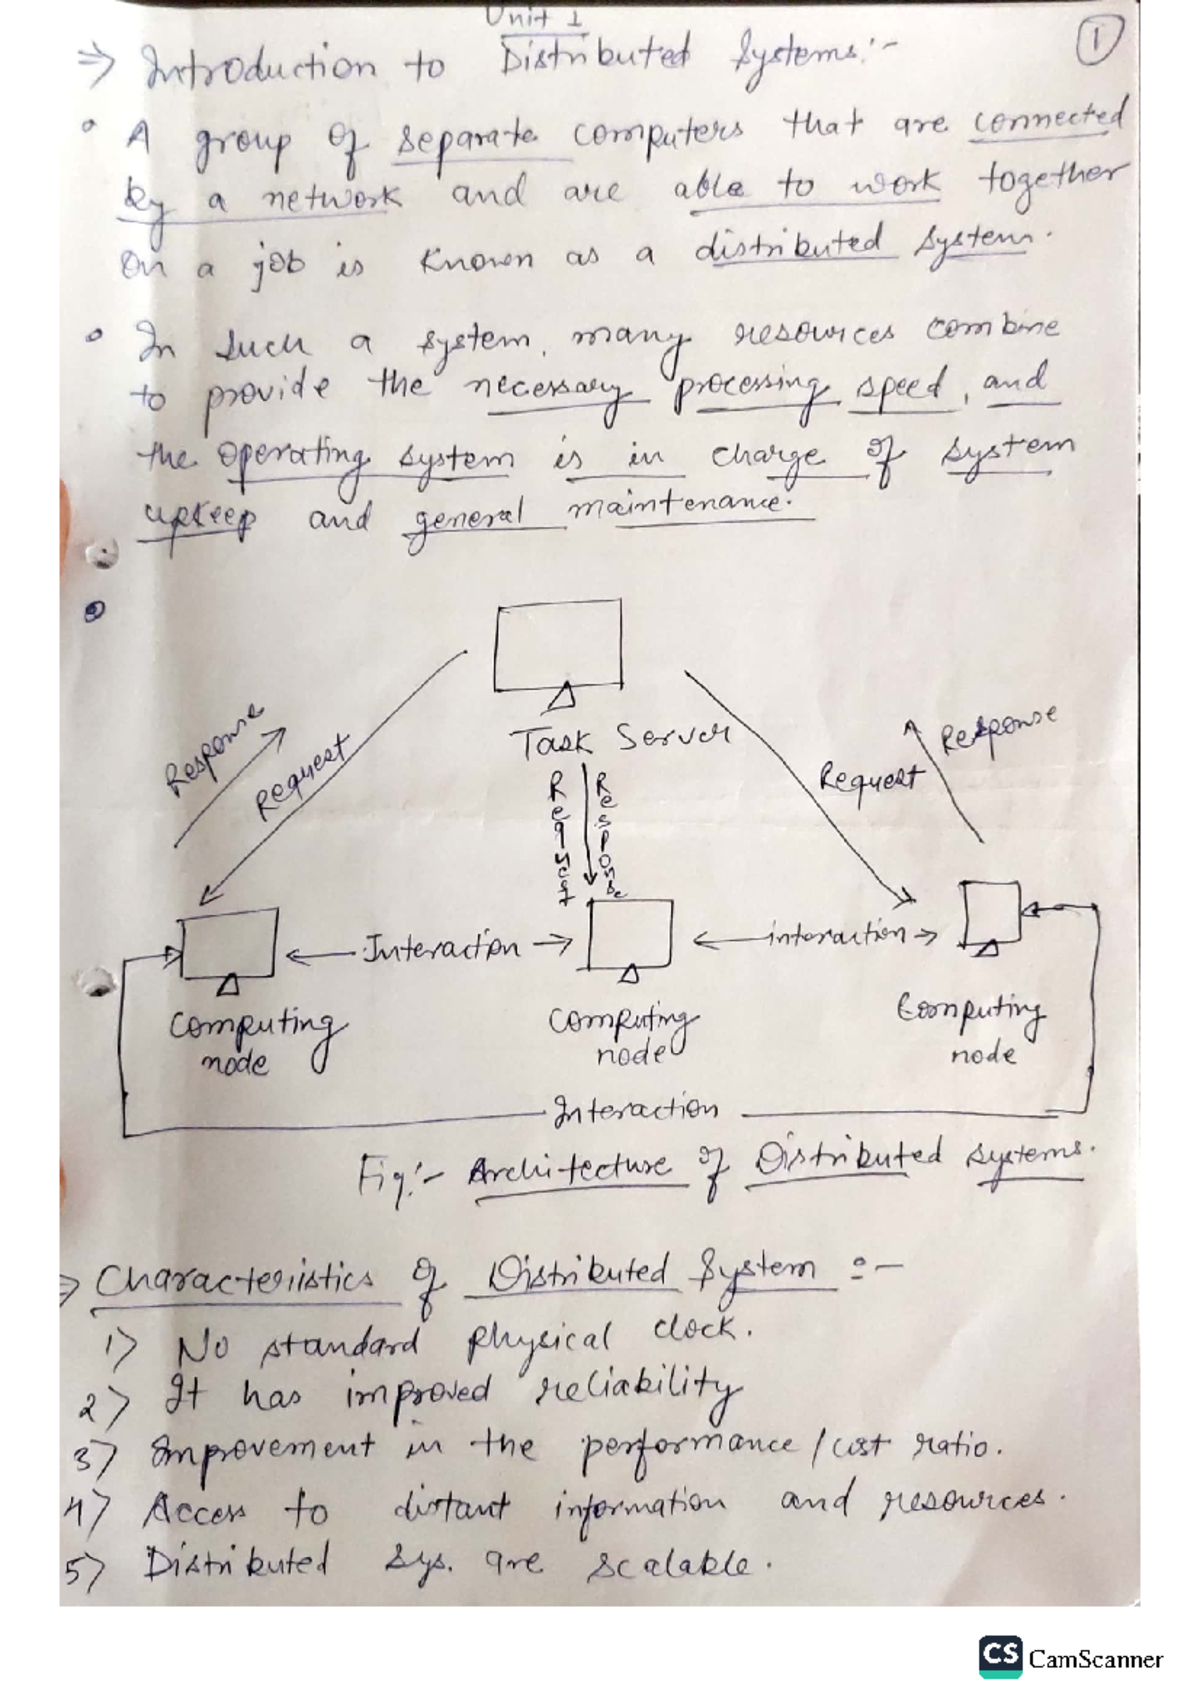 Unit 1
⇒ Introduction to Distributed Systems:-
1
• A group of separate computers that are connected
by a network and are able to work together
on a job is known as a distributed system.
• In such a system, many resources combine
to provide the necessary processing speed, and
the operating system is in charge of system
upkeep and general maintenance.
Task Server
Response
Request
Request
Response
Request
Response
Interaction
interaction
Computing
node
Computing
node
Computing
node
Interaction
Fig:- Architecture of Distributed Systems.
⇒ Characteristics of Distributed System :-
1) No standard physical clock.
2) It has improved reliability
3) Improvement in the performance/cost ratio.
4) Access to distant information and resources.
5) Distributed sys. are scalable.
CS CamScanner